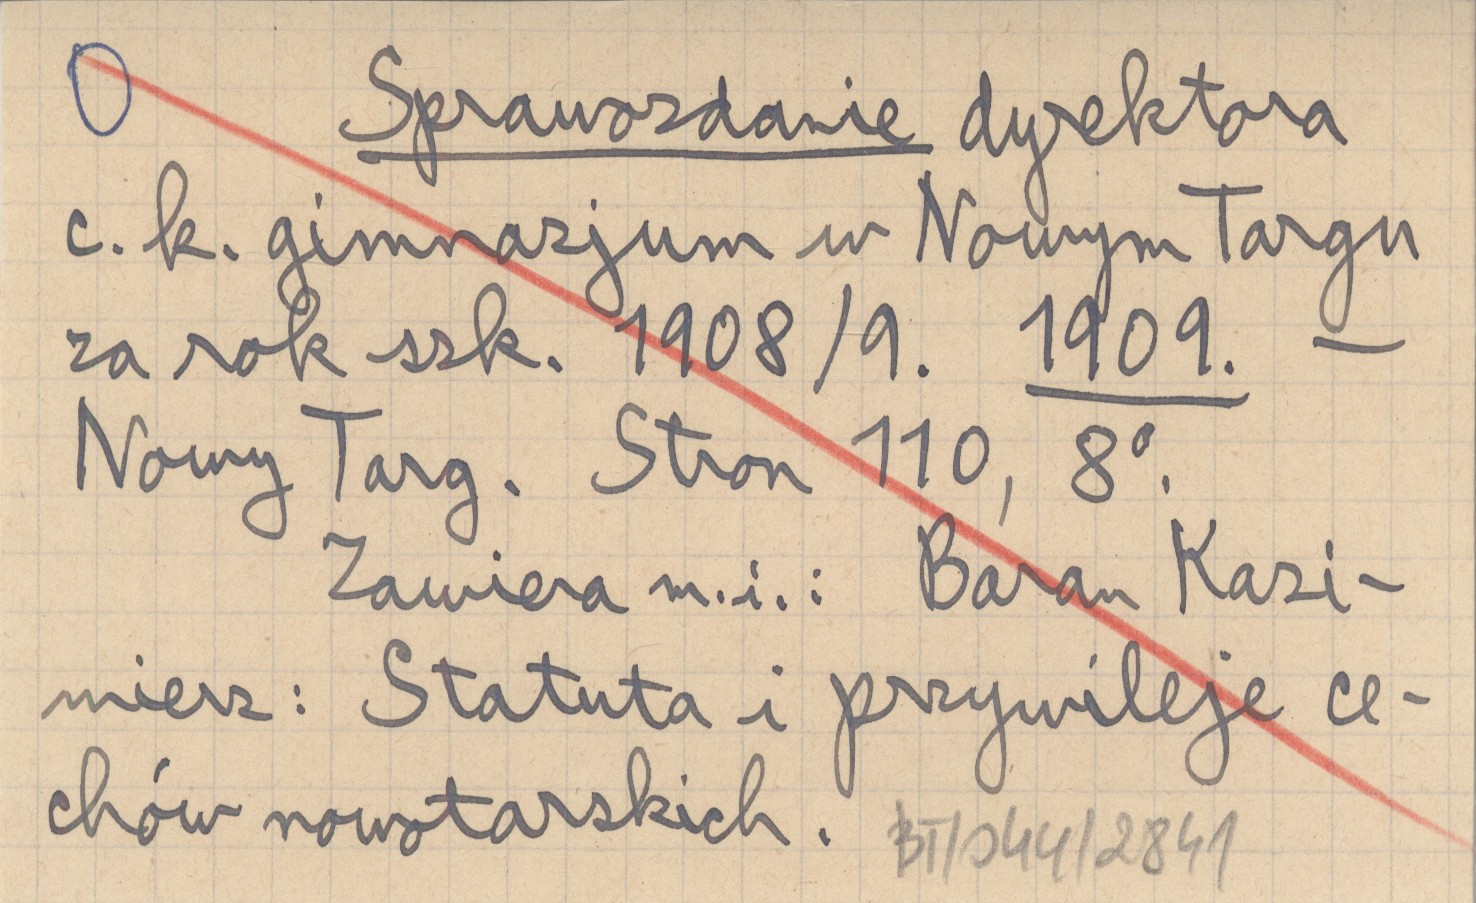 Sprawozdanie dyrektora
c. k. gimnazjum w Nowym Targu
za rok szk. 1908/9. 1909. —
Nowy Targ. Stron 110, 8°.
Zawiera m.i.: Baran Kazi-
mierz: Statuta i przywileje ce-
chów nowotarskich.